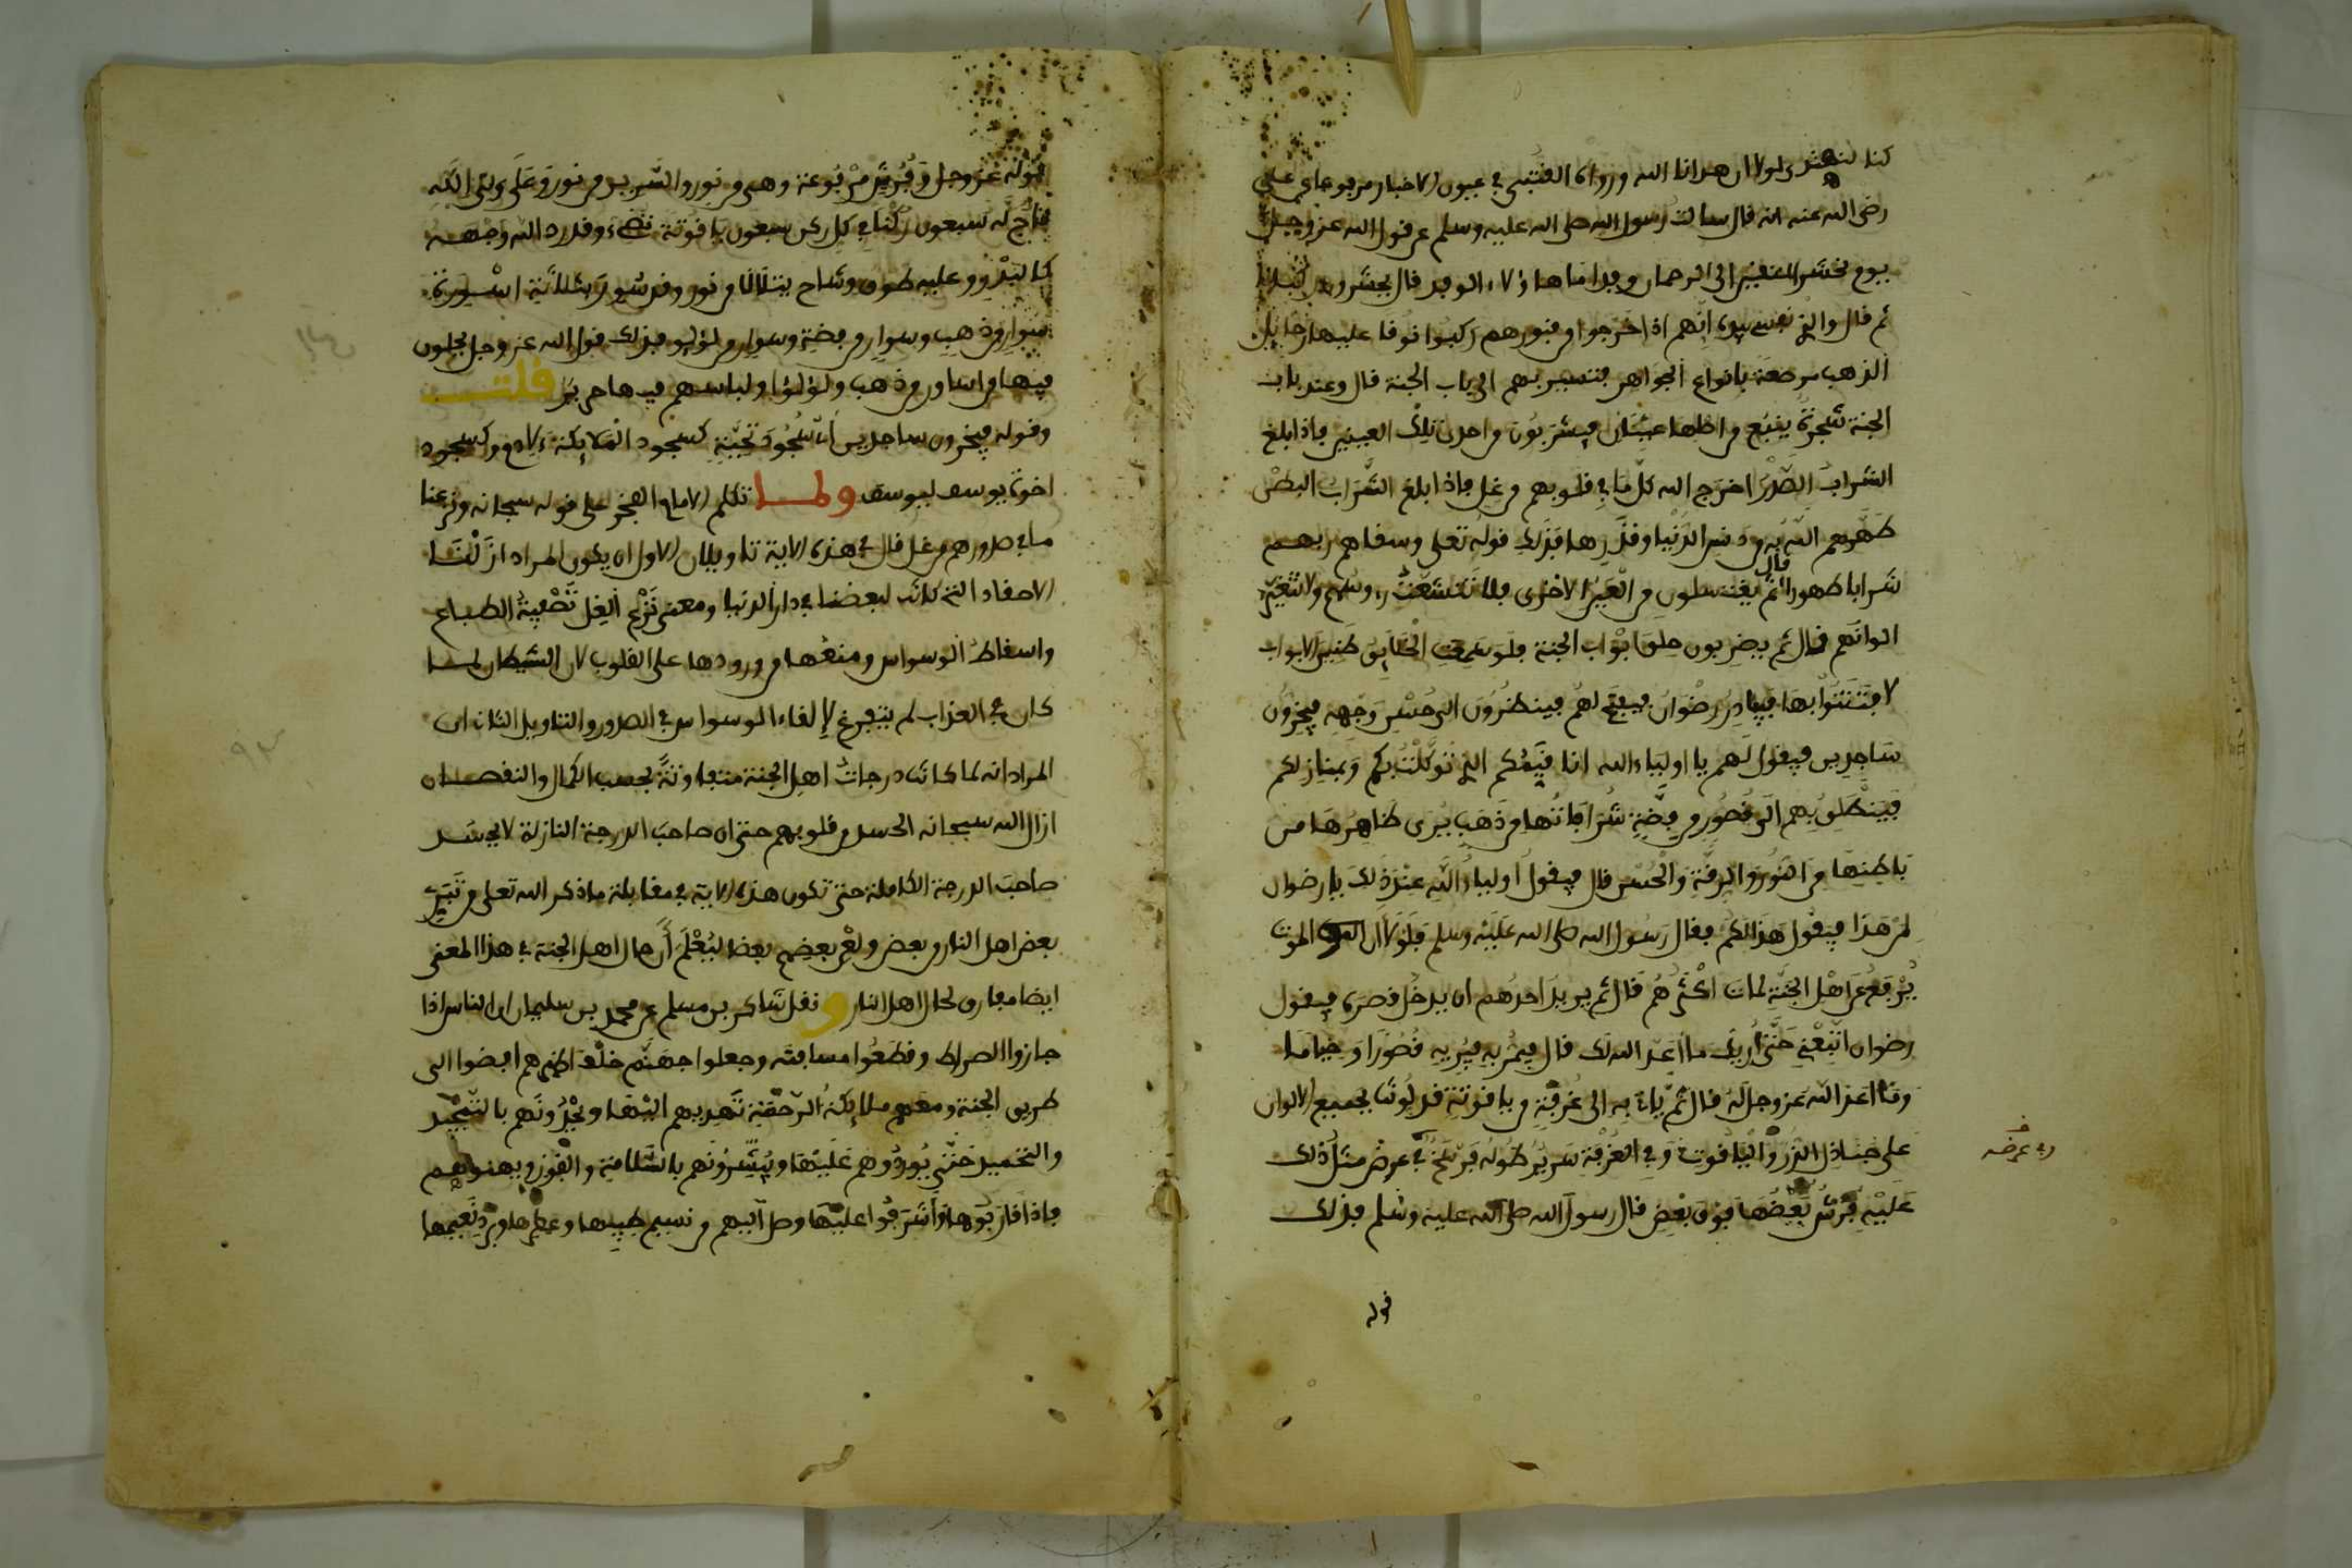 كنا لنهتدي لولا ان هدانا الله ورواه القتبي في عيون الاخبار مرفوعا عن علي
رضي الله عنه انه قال سالت رسول الله صلى الله عليه وسلم عن قول الله عز وجل
يوم نحشر المتقين الى الرحمان وفدا ما هاؤلاء الوفد قال يحشرون ركبانا
ثم قال والذي نفسي بيده انهم اذا خرجوا من قبورهم ركبوا نوقا عليها رحايل
الذهب مرصعة بانواع الجواهر فتسير بهم الى باب الجنة قال وعند باب
الجنة شجرة ينبع من اصلها عينان فيشربون من احدى تلك العينين فاذا بلغ
الشراب الصدر اخرج الله كل ما في قلوبهم من غل فاذا بلغ الشراب البطن
طهرهم الله به من دنس الدنيا وقذرها فذلك قوله تعلى وسقاهم ربهم
شرابا طهورا قال ثم يغتسلون من العين الاخرى فلا تشعث رءوسهم ولا تتغير
الوانهم قال ثم يضربون حلق ابواب الجنة فلو سمعت الخلايق طنين الابواب
لافتتنوا بها فيبادر رضوان فيفتح لهم فينظرون الى حسن وجهه فيخرون
ساجدين فيقول لهم يا اولياء الله انا قيمكم الذي توكلت بكم وبمنازلكم
فينطلق بهم الى قصور من فضة شرافاتها من ذهب يرى ظاهرها من
باطنها من النور والرقة والحسن قال فيقول اولياء الله عند ذلك يا رضوان
لمن هذا فيقول هذا لكم فقال رسول الله صلى الله عليه وسلم فلولا ان الموت
يرفع عن اهل الجنة لمات اكثرهم قال ثم يريد احدهم ان يدخل قصره فيقول
رضوان اتبعني حتى اريك ما اعد الله لك قال فيمر به فيريه قصورا وخياما
وما اعد الله عز وجل له قال ثم ياتي به الى غرفة من ياقوتة قد لونت بجميع الالوان
على جنادل الدر والياقوت وفي الغرفة سرير طوله فرسخ في عرض مثل ذلك
وفي عرضه
عليه فرش بعضها فوق بعض قال رسول الله صلى الله عليه وسلم فذلك
قوله
قوله عز وجل وفرش مرفوعة وهي من نور والسرير من نور وعلى ولي الله
تاج له سبعون ركنا في كل ركن سبعون ياقوتة تضيء وقد رد الله وجهه
كالبدر وعليه طوق ووشاح يتلالا من نور وقد سور بثلاثة اسورة
سوار من ذهب وسوار من فضة وسوار من لؤلؤ فذلك قول الله عز وجل يحلون
فيها من اساور من ذهب ولؤلؤا ولباسهم فيها حرير قلت
وقوله فيخرون ساجدين اي سجود تحية كسجود الملايكة لادم وكسجود
اخوة يوسف ليوسف ولما تكلم الامام الفخر على قوله سبحانه ونزعنا
ما في صدورهم من غل قال في هذه الاية تاويلان الاول ان يكون المراد ازلنا
الاحقاد التي كانت لبعضنا في دار الدنيا ومعنى نزع الغل تصفية الطباع
واسقاط الوسواس ومنعها من ورودها على القلوب لان الشيطان لما
كان في العذاب لم يتفرغ لإلقاء الوسواس في الصدور والتاويل الثاني ان
المراد انه لما كانت درجات اهل الجنة متفاوتة بحسب الكمال والنقصان
ازال الله سبحانه الحسد من قلوبهم حتى ان صاحب الدرجة النازلة لا يحسد
صاحب الدرجة الكاملة حتى تكون هذه الاية في مقابلة ما ذكر الله تعلى من تبري
بعض اهل النار من بعض ولعن بعضهم بعضا ليعلم أن حال اهل الجنة في هذا المعنى
ايضا مفارق لحال اهل النار ونقل شاكر بن مسلم عن محمد بن سليمان ان الناس اذا
جازوا الصراط وقطعوا مسافته وجعلوا جهنم خلف اظهرهم افضوا الى
طريق الجنة ومعهم ملايكة الرحمة تهديهم اليها ويحدونهم بالتمجيد
والتحميد حتى يوردوهم عليها ويبشرونهم بالسلامة والفوز ويهنونهم
فاذا قاربوها وأشرفوا عليها وصل اليهم من نسيم طيبها وعطرها وبرد نعيمها